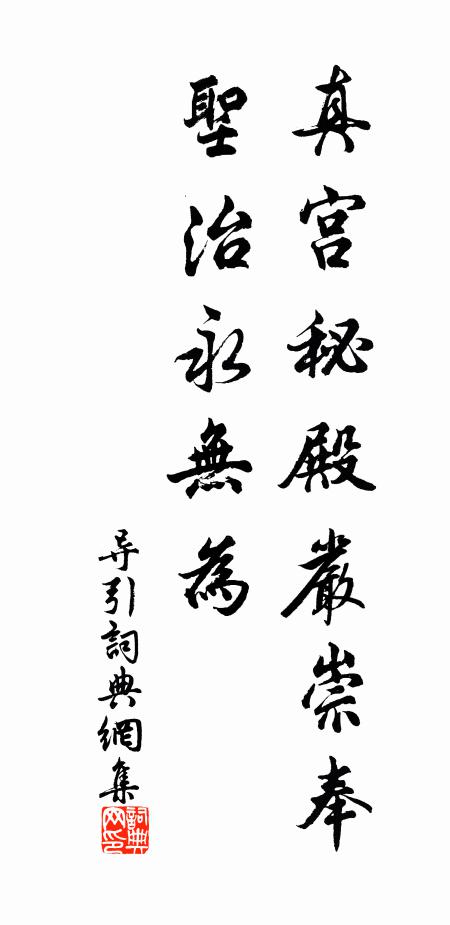 真宫秘殿嚴崇奉
聖治永無為
导引詞典網集
詞典
网印